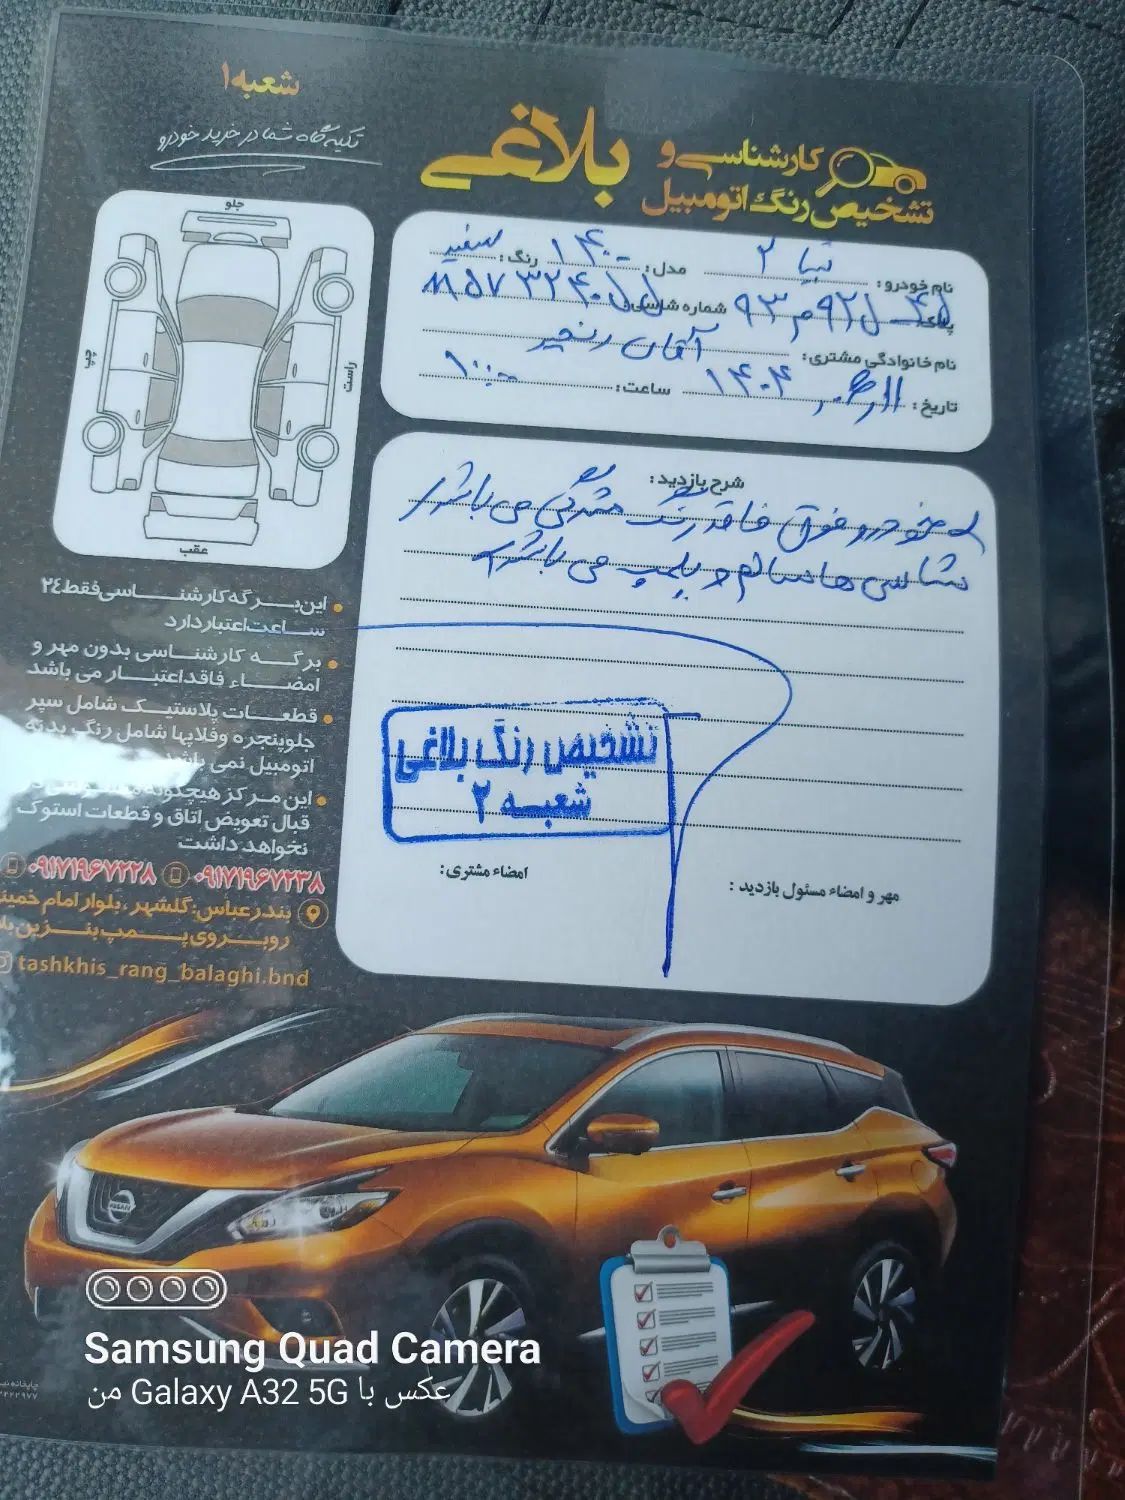 شعبه ۱
تکیه گاه شما در خرید خودرو
کارشناسی و
تشخیص رنگ اتومبیل
بلاغی
نام خودرو: تیبا ۲ مدل: ۱۴۰۰ رنگ: سفید
پلاک: شماره شاسی:
نام خانوادگی مشتری: آقای رنجبر
تاریخ: ۱۴۰۴ ساعت: ۱۰:۰۰
جلو
چپ
راست
عقب
شرح بازدید:
خودرو فوق فاقد رنگ شدگی می باشد
شاسی ها سالم و پلمپ می باشد
این برگه کارشناسی فقط ۲۴
ساعت اعتبار دارد
برگه کارشناسی بدون مهر و
امضاء فاقد اعتبار می باشد
قطعات پلاستیک شامل سپر
جلوپنجره و قلاپها شامل رنگ بدنه
اتومبیل نمی باشد
این مرکز هیچگونه
قبال تعویض اتاق و قطعات استوک
نخواهد داشت
۰۹۱۷۱۹۶۷۲۳۸ ۰۹۱۷۱۹۶۷۲۲۸
بندرعباس: گلشهر، بلوار امام خمینی
روبروی پمپ بنزین
tashkhis_rang_balaghi.bnd
تشخیص رنگ بلاغی
شعبه ۲
امضاء مشتری:
مهر و امضاء مسئول بازدید :
Samsung Quad Camera
عکس با Galaxy A32 5G من